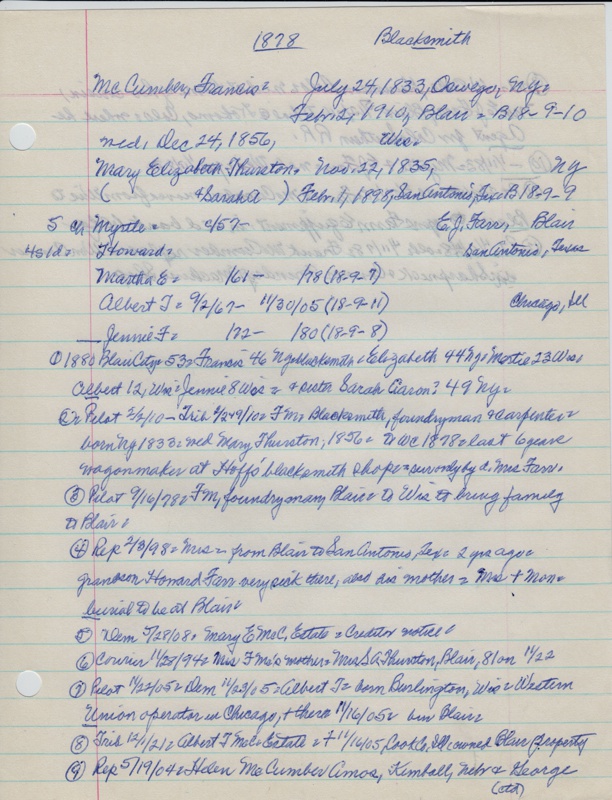 1878 Blacksmith
McCumber, Francis = July 24, 1833, Oswego, Ny =
Feb. 2, 1910, Blair = B18-9-10
med, Dec 24, 1856, Wis =
Mary Elizabeth Thurston = Nov. 22, 1835, Ny
( & Sarah A ) Feb. 1, 1898, San Antonio, Tex = B 18-9-9
5 c/, Myrtle = c/57- E.J. Farr, - Blair
4s 1d = Howard = San Antonio, Texas
Martha E = /61- /78 (18-9-7)
Albert T = 9/2/67- 11/30/05 (18-9-11) Chicago, Ill
Jennie F = /72- /80 (18-9-8)
① 1880 Blair City = 53 = Francis 46 Ny = blacksmith = Elizabeth 44 Ny = Mertie 23 Wis =
Albert 12, Wis = Jennie 8 Wis = & sister Sarah 49 Ny =
② Pilot 2/2/10 - Trib = F M = Blacksmith, foundryman & carpenter =
born Ny 1833 = med Mary Thurston, 1856 = to WC 1878 = last 6 years
wagonmaker at Hoff's blacksmith shop = surv only by d. Mrs Farr =
③ Pilot 9/16/78 = F M, foundryman, Blair = to Wis to bring family
to Blair =
④ Rep 2/3/98 = Mrs = from Blair to San Antonio, Tex = 2 yrs ago =
grandson Howard Farr very sick there, also his mother = Mrs + Mon =
burial to be at Blair =
⑤ Dem 5/28/08 = Mary E McC, Estate = Creditor notice =
⑥ Courier 11/28/94 = Mrs F Mc's mother = Mrs S A Thurston, Blair, 81 on 11/22
⑦ Pilot 11/22/05 = Dem 11/23/05 = Albert T = born Burlington, Wis = Western
Union operator in Chicago, + there 11/16/05 = bur Blair =
⑧ Trib 12/1/21 = Albert T McC = Estate = + 11/16/05, Cook Co, Ill = owned Blair property
⑨ Rep 5/19/04 = Helen McCumber Amos, Kimball, Nebr & George